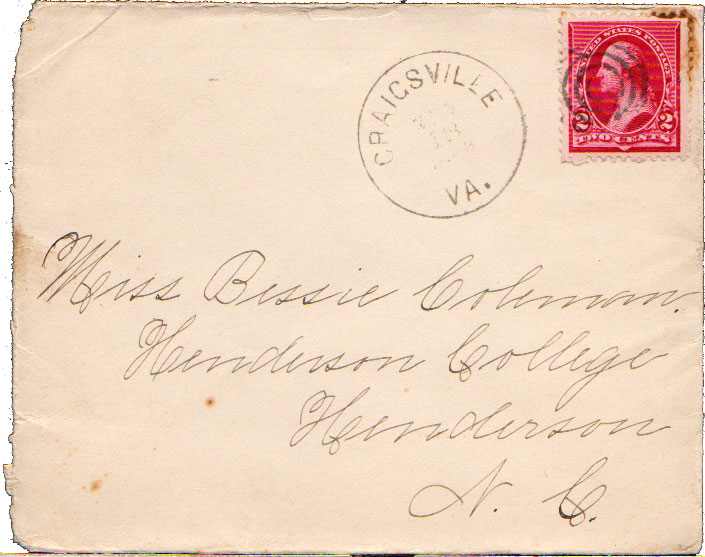 CRAIGSVILLE
VA.
UNITED STATES POSTAGE
2 2
TWO CENTS
Miss Bessie Coleman.
Henderson College
Henderson
N. C.